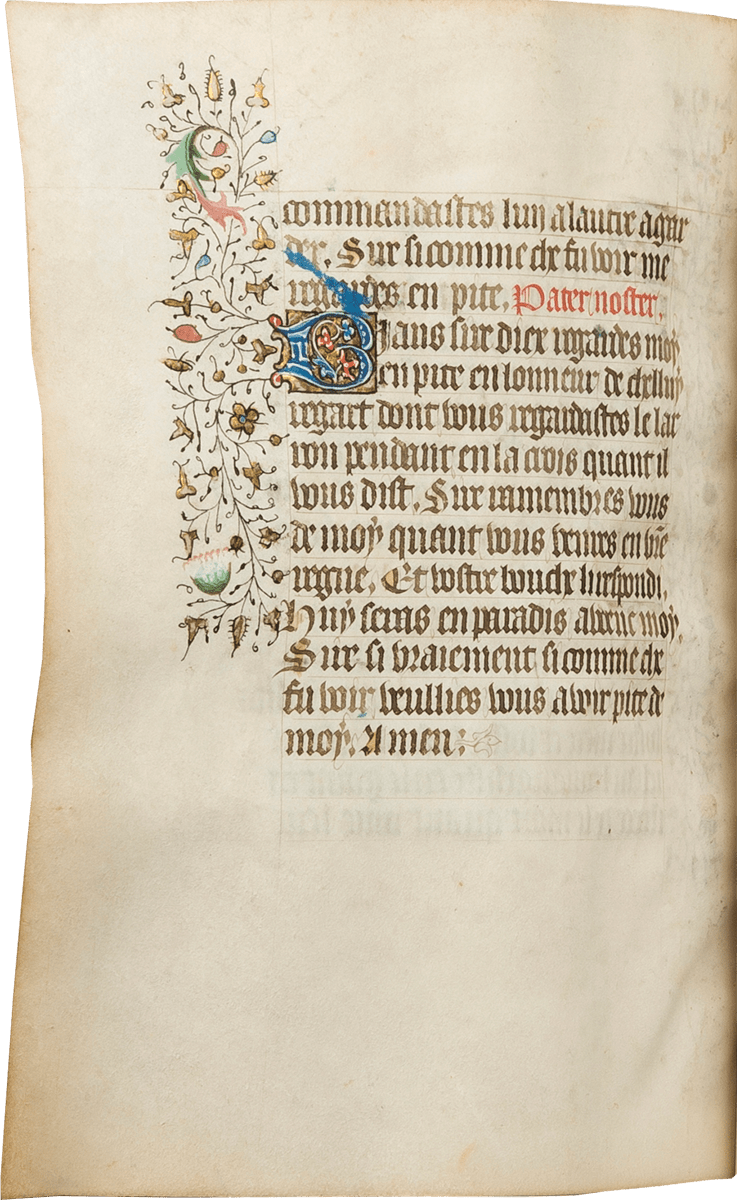 commandastes lun a lautre a gar
der. Sire si comme che fu voir me
regardes en pite. Pater noster.
Biaus sire diex regardes moy
en pite en lonneur de chelluy
regart dont vous regardastes le lar
ron pendant en la crois quant il
vous dist. Sire ramembres vous
de moy quant vous venres en vre
regne. Et vostre bouche li respondi.
Huy seras en paradis avecuc moy.
Sire si vraiement si comme che
fu voir veullies vous avoir pite de
moy. Amen: